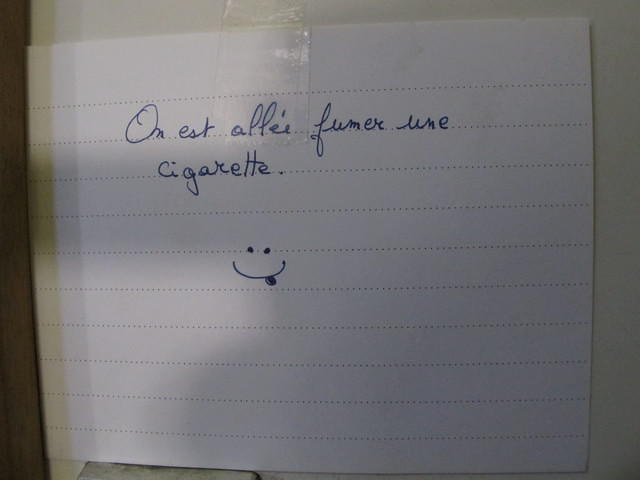 On est allée fumer une
cigarette.